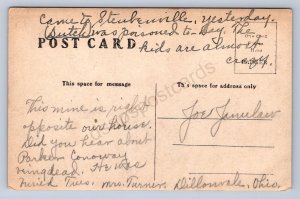 Came to Steubenville, yesterday.
Butch was poisoned to Day. The
POST CARD
kids are almost
crazy.
This space for message
This space for address only
This mine is right
opposite our house.
Did you hear about
Parker Conoway
being dead. He was
Tues. Mrs. Turner
Joe
Dillonvale, Ohio,